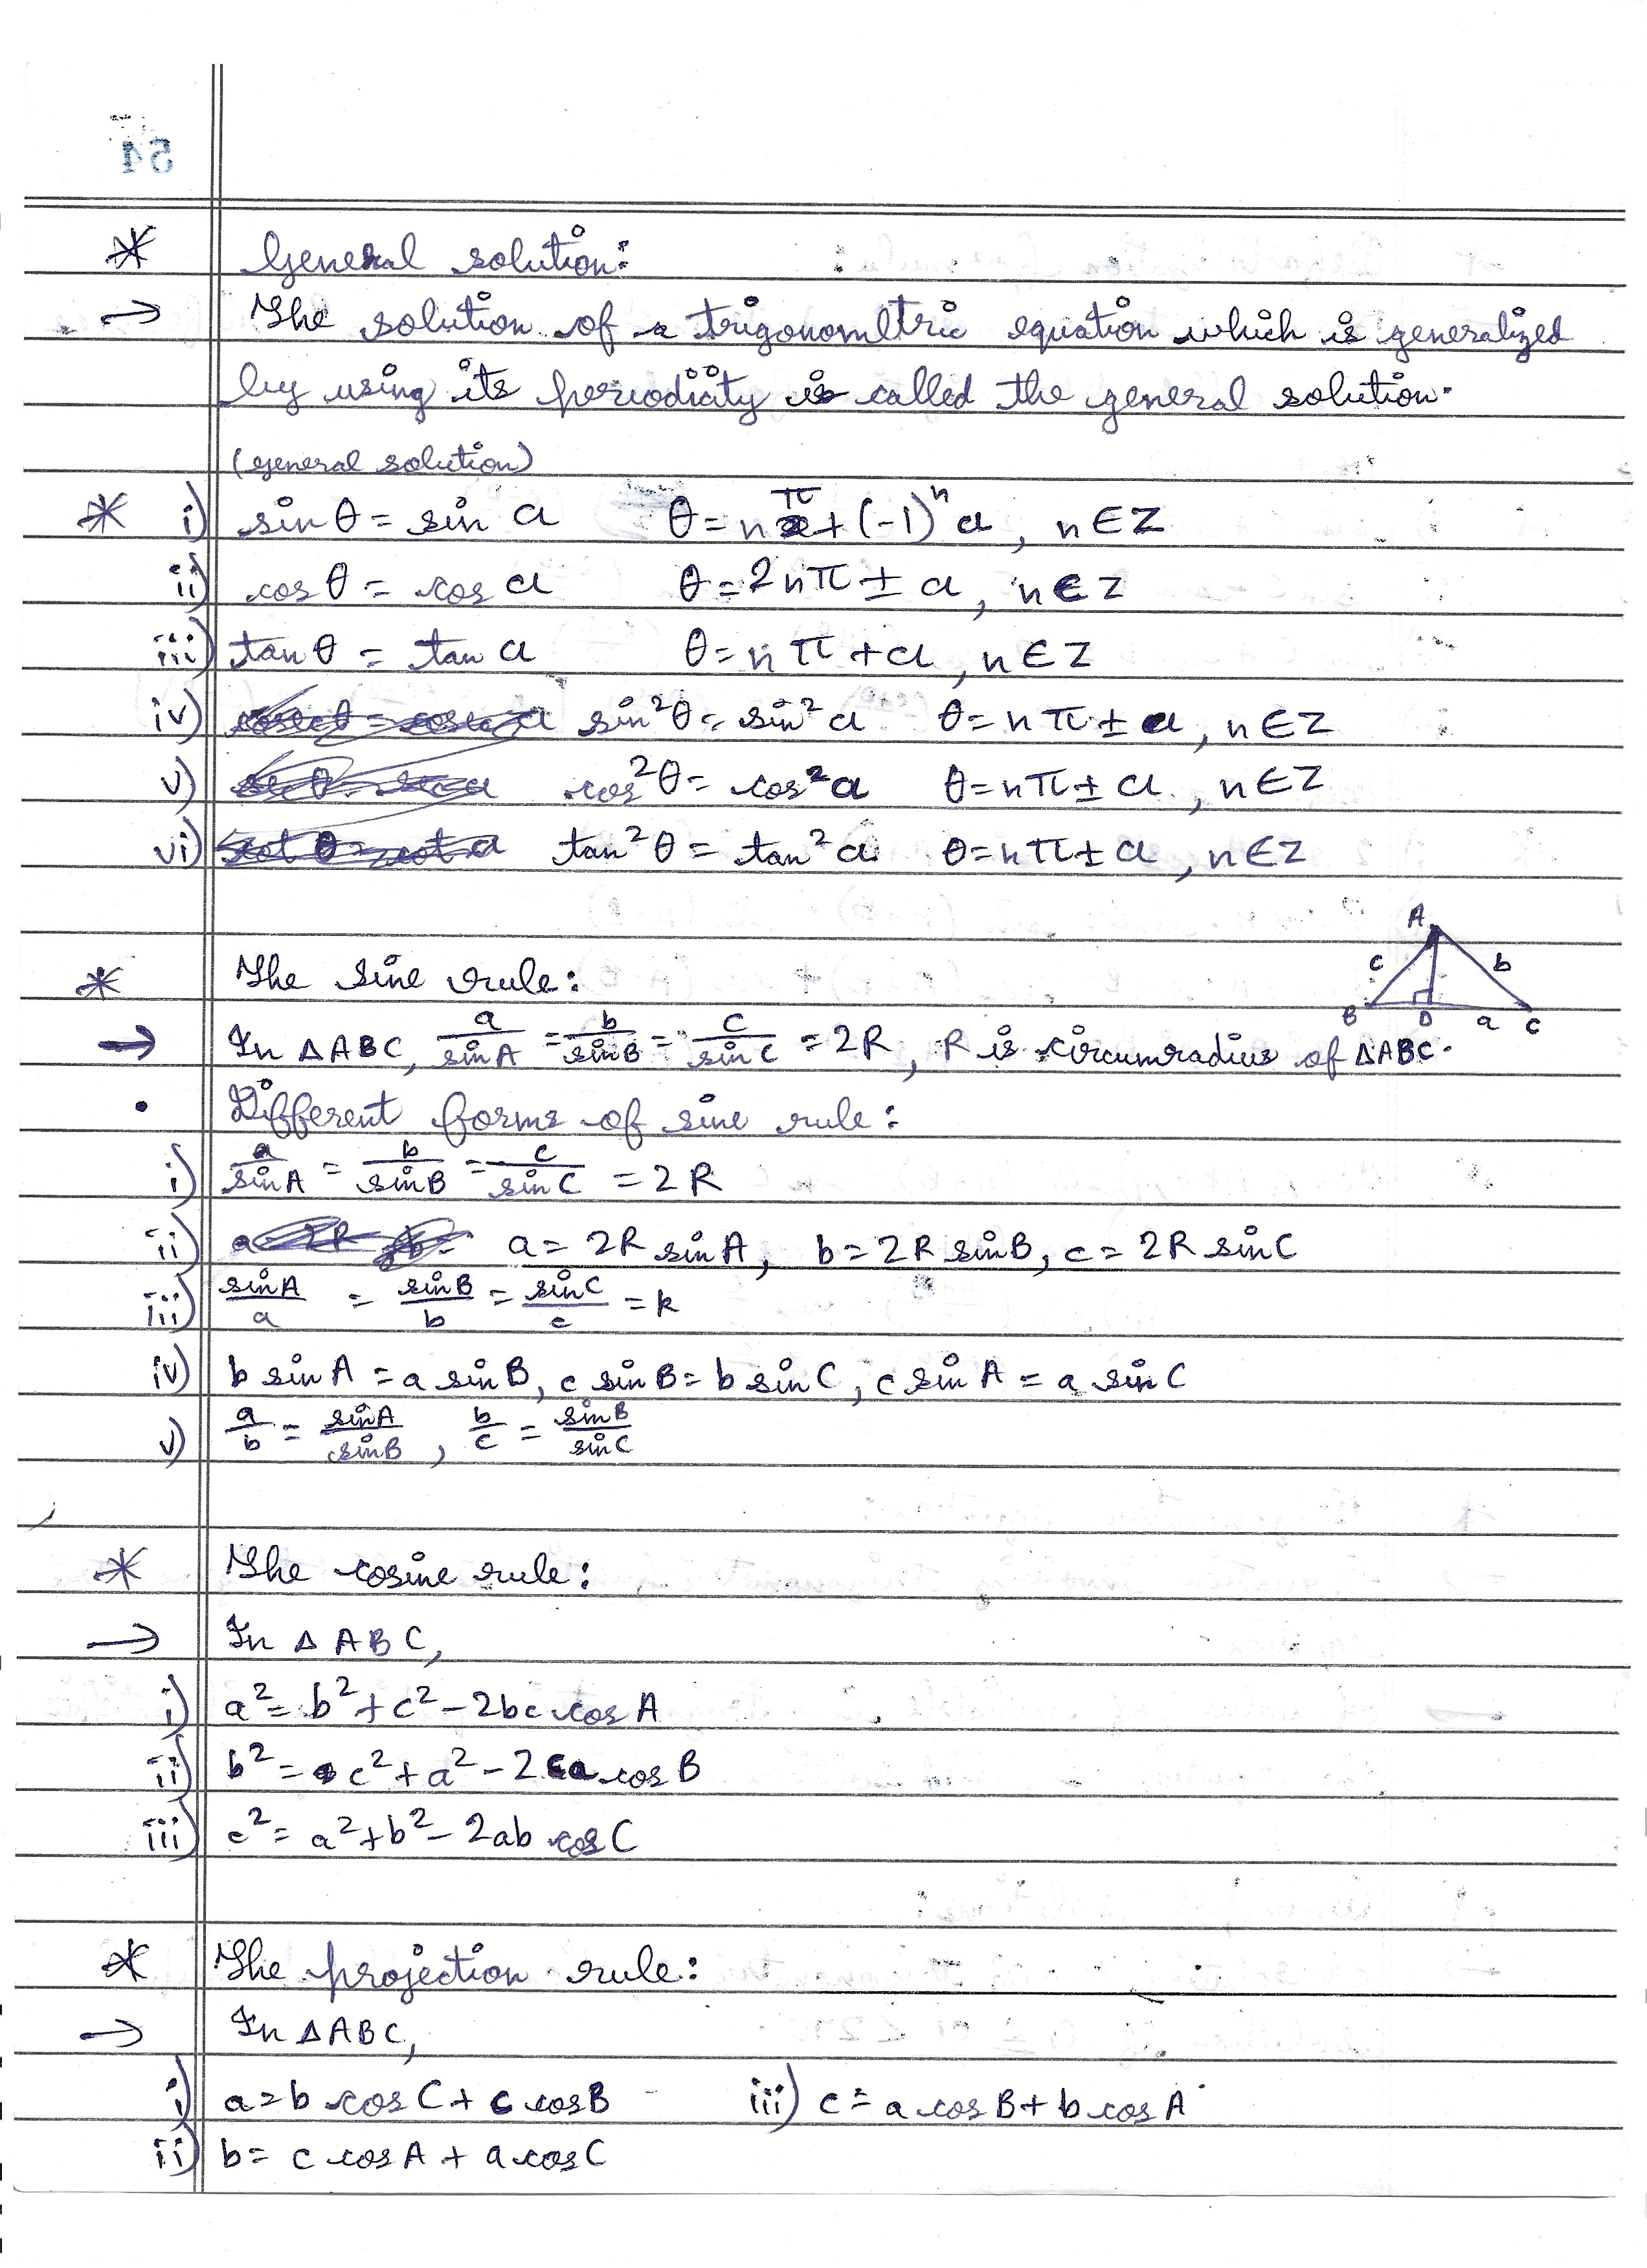 54
* General solution:
→ The solution of a trigonometric equation which is generalized
by using its periodicity is called the general solution.
(general solution)
* i) sin θ = sin a θ = nπ + (-1)ⁿ a, n ∈ Z
ii) cos θ = cos a θ = 2nπ ± a, n ∈ Z
iii) tan θ = tan a θ = nπ + a, n ∈ Z
iv) sin²θ = sin²a θ = nπ ± a, n ∈ Z
v) cos²θ = cos²a θ = nπ ± a, n ∈ Z
vi) tan²θ = tan²a θ = nπ ± a, n ∈ Z
A
c b
B D a C
* The sine rule:
→ In △ABC, a/sinA = b/sinB = c/sinC = 2R, R is circumradius of △ABC.
• Different forms of sine rule:
i) a/sinA = b/sinB = c/sinC = 2R
ii) a = 2R sinA, b = 2R sinB, c = 2R sinC
iii) sinA/a = sinB/b = sinC/c = k
iv) b sinA = a sinB, c sinB = b sinC, c sinA = a sinC
v) a/b = sinA/sinB, b/c = sinB/sinC
* The cosine rule:
→ In △ABC,
i) a² = b² + c² - 2bc cosA
ii) b² = c² + a² - 2ca cosB
iii) c² = a² + b² - 2ab cosC
* The projection rule:
→ In △ABC,
i) a = b cosC + c cosB iii) c = a cosB + b cosA
ii) b = c cosA + a cosC